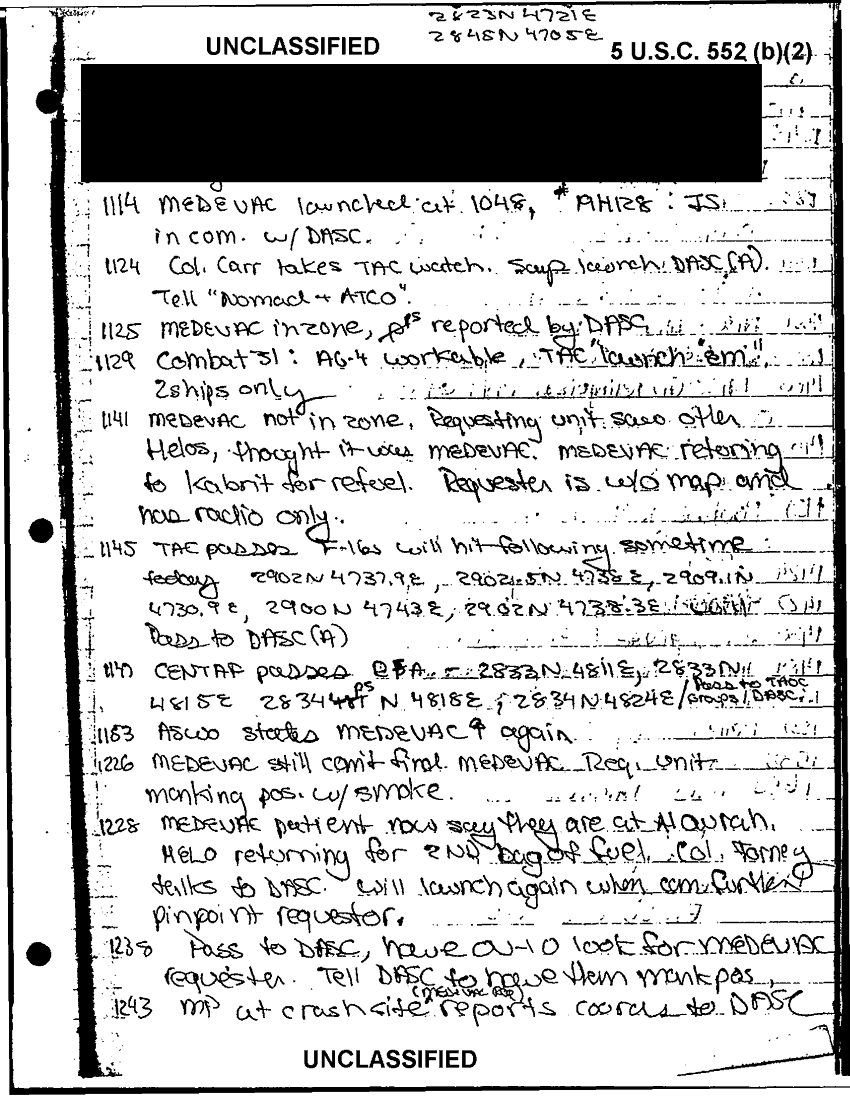 2823N 4721E
2848N 4705E
UNCLASSIFIED
5 U.S.C. 552 (b)(2)
1114 MEDEVAC launched at 1048, # AH128 : JS
in com. w/ DASC.
1124 Col. Carr takes TAC watch. Says launch DASC(A).
Tell "Nomad + ATCO".
1125 MEDEVAC in zone, ps reported by DASC
1129 Combat 51: AG-4 workable, TAC "launch 'em",
2ships only
1141 MEDEVAC not in zone. Requesting unit saw other
Helos, thought it was MEDEVAC. MEDEVAC retoring
to Kabrit for refuel. Requester is w/o map and
has radio only.
1145 TAC passes F-16s will hit following sometime
today 2902N 4737.9E, 2902.5N 4738E, 2909.1N
4730.9E, 2900N 4743E, 2902N 4738.3E
Pass to DASC(A)
CENTAF passes - 2833N 4811E, 2833N
4815E 2834 ps N 4818E, 2834N 4824E / Pass to TAOC
Groups/DASC
1153 ASWO states MEDEVAC ↑ again
1226 MEDEVAC still can't find MEDEVAC Req. unit
marking pos. w/ smoke.
1228 MEDEVAC patient now say they are at
HELO returning for 2ND bag of fuel. Col. Forney
talks to DASC. will launch again when can further
pinpoint requestor.
1238 Pass to DASC, have OV-10 look for MEDEVAC
requester. Tell DASC to have them mark pos,
1243 MP at crash site (MEDEVAC REQ) reports coords to DASC
UNCLASSIFIED